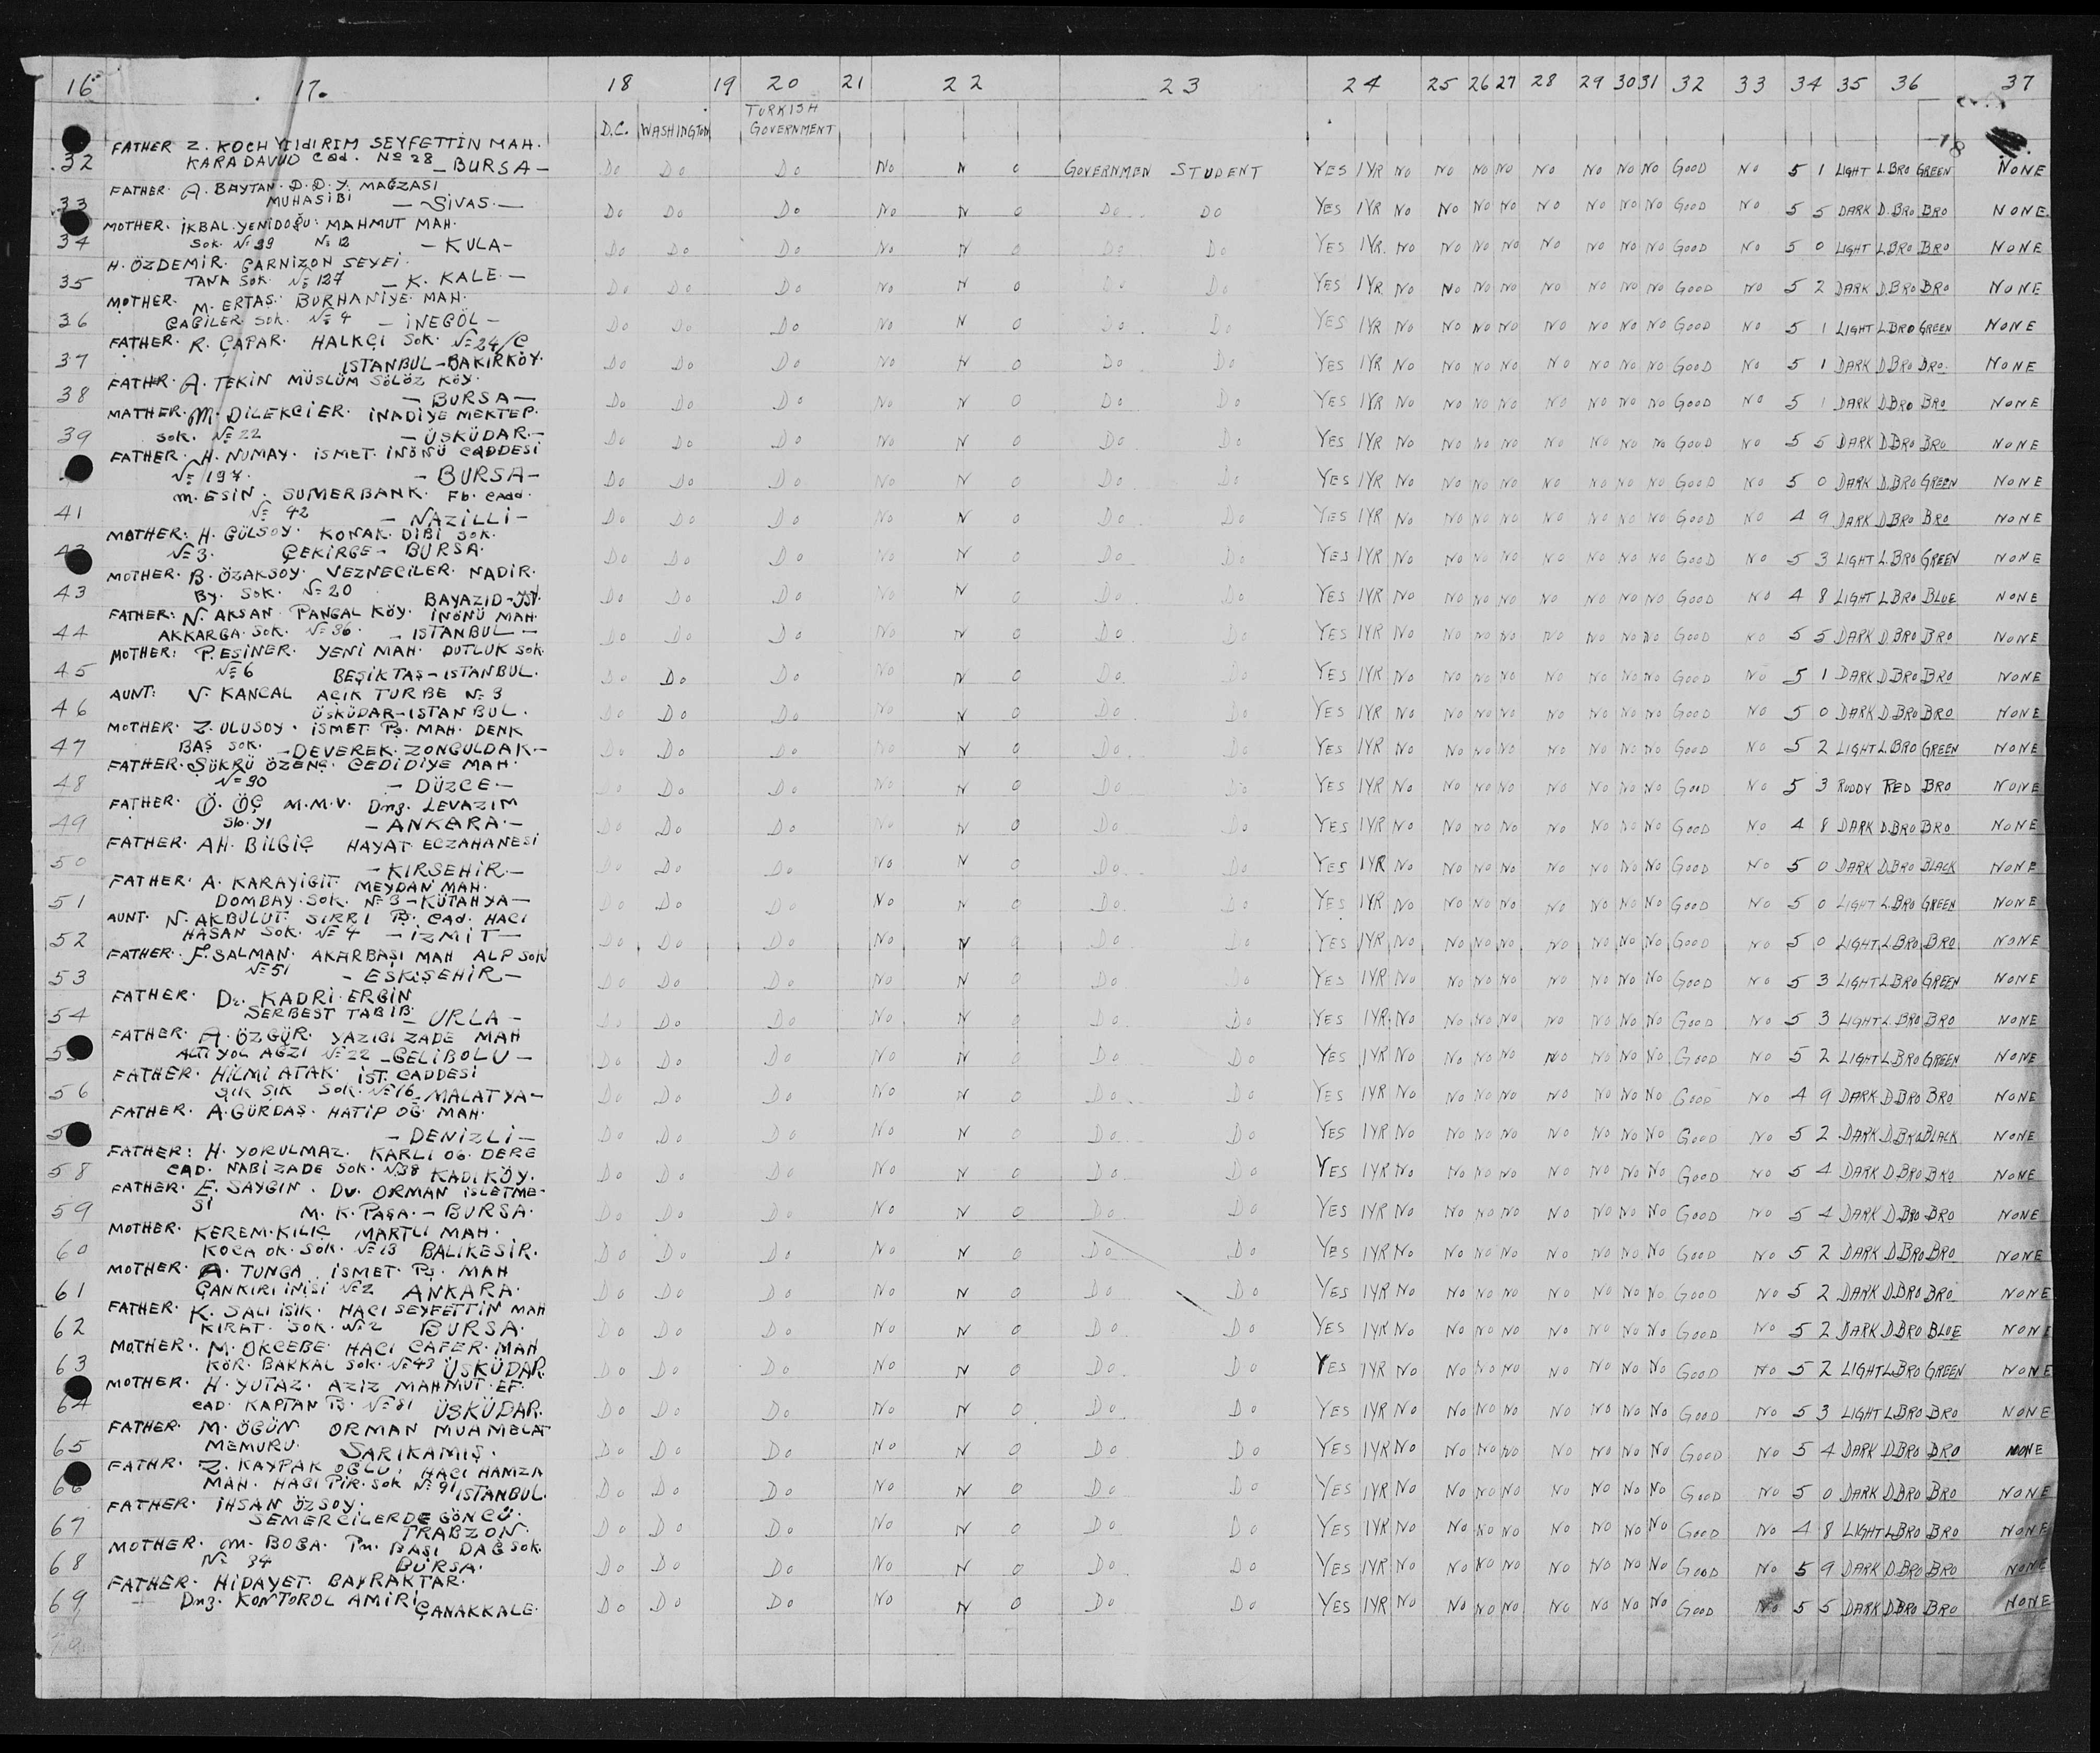 16 17. 18 19 20 21 22 23 24 25 26 27 28 29 30 31 32 33 34 35 36 37
D.C. WASHINGTON TURKISH GOVERNMENT
18
FATHER Z. KOCH YILdIRIM SEYFETTİN MAH.
32 KARADAVUD Cad. No 28 - BURSA - Do Do Do No N O GOVERNMEN STUDENT YES 1YR No No No No No No No No Good No 5 1 LIGHT L.BRO GREEN NONE
FATHER. A. BAYTAN. D.D.Y. MAĞZASI
33 MUHASİBİ - SİVAS. - Do Do Do No N O Do Do YES 1YR No No No No No No No No Good No 5 5 DARK D.BRO BRO NONE
MOTHER. İKBAL. YENİDOĞU: MAHMUT MAH.
34 Sok. No 39 No 12 - KULA - Do Do Do No N O Do Do YES 1YR. No No No No No No No No Good No 5 0 LIGHT L.BRO BRO NONE
H. ÖZDEMİR. GARNİZON SEYFİ.
35 TANA Sok. No 127 - K. KALE. - Do Do Do No N O Do Do YES 1YR No No No No No No No No Good No 5 2 DARK D.BRO BRO NONE
MOTHER. M. ERTAS. BURHANİYE. MAH.
36 Sok. No 4 - İNEGÖL - Do Do Do No N O Do Do YES 1YR No No No No No No No No Good No 5 1 LIGHT L.BRO GREEN NONE
FATHER. R. ÇAPAR. HALKÇI SOK. No 24/C
37 ISTANBUL - BAKIRKÖY. Do Do Do No N O Do Do YES 1YR No No No No No No No No Good No 5 1 DARK D.BRO BRO. NONE
FATHR. A. TEKİN MÜSLÜM SÖLÖZ KÖY.
38 - BURSA - Do Do Do No N O Do Do YES 1YR No No No No No No No No Good No 5 1 DARK D.BRO BRO NONE
MATHER. M. DİLEKCİER. İNADİYE MEKTEP.
39 Sok. No 22 - ÜSKÜDAR. - Do Do Do No N O Do Do YES 1YR No No No No No No No No Good No 5 5 DARK D.BRO BRO NONE
FATHER. H. NUMAY. İSMET. İNÖNÜ CADDESİ
No 197. - BURSA - Do Do Do No N O Do Do YES 1YR No No No No No No No No Good No 5 0 DARK D.BRO GREEN NONE
M. ESİN. SUMERBANK. Fb. Cadd.
41 No 42 - NAZİLLİ - Do Do Do No N O Do Do YES 1YR No No No No No No No No Good No 4 9 DARK D.BRO BRO NONE
MOTHER: H. GÜLSOY. KONAK. DİBİ SOK.
No 3. ÇEKİRGE - BURSA. Do Do Do No N O Do Do YES 1YR No No No No No No No No Good No 5 3 LIGHT L.BRO GREEN NONE
MOTHER. B. ÖZAKSOY. VEZNECİLER. NADİR.
43 By. Sok. No 20 BAYAZID - IST. Do Do Do No N O Do Do YES 1YR No No No No No No No No Good No 4 8 LIGHT L.BRO BLUE NONE
FATHER: N. AKSAN. PANGAL KÖY. İNÖNÜ MAH.
44 AKKARGA. SOK. No 36. - ISTANBUL - Do Do Do No N O Do Do YES 1YR No No No No No No No No Good No 5 5 DARK D.BRO BRO NONE
MOTHER: P. ESİNER. YENİ MAH. DUTLUK Sok.
45 No 6 BEŞİKTAŞ - ISTANBUL. Do Do Do No N O Do Do YES 1YR No No No No No No No No Good No 5 1 DARK D.BRO BRO NONE
AUNT: V. KANCAL AÇIK TURBE No 3
46 ÜSKÜDAR - ISTANBUL. Do Do Do No N O Do Do YES 1YR No No No No No No No No Good No 5 0 DARK D.BRO BRO NONE
MOTHER. Z. ULUSOY. İSMET. Pş. MAH. DENK
47 BAŞ SOK. - DEVEREK. ZONGULDAK. - Do Do Do No N O Do Do YES 1YR No No No No No No No No Good No 5 2 LIGHT L.BRO GREEN NONE
FATHER. ŞÜKRÜ ÖZENÇ. CEDİDİYE MAH.
48 No 90 - DÜZCE. - Do Do Do No N O Do Do YES 1YR No No No No No No No No Good No 5 3 RUDDY RED BRO NONE
FATHER. Ö. ÖÇ M.M.V. Dnz. LEVAZIM
49 Sb. yı - ANKARA. - Do Do Do No N O Do Do YES 1YR No No No No No No No No Good No 4 8 DARK D.BRO BRO NONE
FATHER. AH. BİLGİÇ HAYAT ECZAHANESİ
50 - KIRSEHİR. - Do Do Do No N O Do Do YES 1YR No No No No No No No No Good No 5 0 DARK D.BRO BLACK NONE
FATHER. A. KARAYİGİT. MEYDAN MAH.
51 DOMBAY. SOK. No 3 - KÜTAHYA - Do Do Do No N O Do Do YES 1YR No No No No No No No No Good No 5 0 LIGHT L.BRO GREEN NONE
AUNT. N. AKBULUT. SIRRI Pş. Cad. HACI
52 HASAN SOK. No 4 - İZMİT - Do Do Do No N O Do Do YES 1YR No No No No No No No No Good No 5 0 LIGHT L.BRO BRO NONE
FATHER. F. SALMAN. AKARBAŞI MAH ALP SOK
53 No 51 - ESKİŞEHİR - Do Do Do No N O Do Do YES 1YR No No No No No No No No Good No 5 3 LIGHT L.BRO GREEN NONE
FATHER. Dr. KADRİ. ERGİN
54 SERBEST TABİB. - URLA - Do Do Do No N O Do Do YES 1YR No No No No No No No No Good No 5 3 LIGHT L.BRO BRO NONE
FATHER. A. ÖZGÜR. YAZICI ZADE MAH
ALTI YOL AĞZI No 22 - GELİBOLU - Do Do Do No N O Do Do YES 1YR No No No No No No No No Good No 5 2 LIGHT L.BRO GREEN NONE
FATHER. HİLMİ ATAK. İST. CADDESİ
56 ŞIK ŞIK SOK. No 16 - MALATYA - Do Do Do No N O Do Do YES 1YR No No No No No No No No Good No 4 9 DARK D.BRO BRO NONE
FATHER. A. GÜRDAŞ. HATİP OĞ. MAH.
- DENİZLİ - Do Do Do No N O Do Do YES 1YR No No No No No No No No Good No 5 2 DARK D.BRO BLACK NONE
FATHER: H. YORULMAZ. KARLI OĞ. DERE
58 CAD. NABİZADE SOK. No 38 KADIKÖY. Do Do Do No N O Do Do YES 1YR No No No No No No No No Good No 5 4 DARK D.BRO BRO NONE
FATHER. E. SAYGIN. Dv. ORMAN İSLETME-
59 Sİ M. K. PAŞA. - BURSA. Do Do Do No N O Do Do YES 1YR No No No No No No No No Good No 5 4 DARK D.BRO BRO NONE
MOTHER. KEREM. KILIC MARTLI MAH.
60 KOCA OK. SOK. No 13 BALIKESİR. Do Do Do No N O Do Do YES 1YR No No No No No No No No Good No 5 2 DARK D.BRO BRO NONE
MOTHER. A. TUNGA. İSMET. Pş. MAH
61 ÇANKIRI İNİSİ No 2 ANKARA. Do Do Do No N O Do Do YES 1YR No No No No No No No No Good No 5 2 DARK D.BRO BRO NONE
FATHER. K. SALI IŞIK. HACI SEYFETTİN MAH
62 KIRAT. SOK. No 2 BURSA. Do Do Do No N O Do Do YES 1YR No No No No No No No No Good No 5 2 DARK D.BRO BLUE NONE
MOTHER. M. OKCEBE. HACI CAFER. MAH
63 KÖR. BAKKAL SOK. No 43 ÜSKÜDAR. Do Do Do No N O Do Do YES 1YR No No No No No No No No Good No 5 2 LIGHT L.BRO GREEN NONE
MOTHER. H. YUTAZ. AZİZ MAHMUT. EF.
64 CAD. KAPTAN Pş. No 81 ÜSKÜDAR. Do Do Do No N O Do Do YES 1YR No No No No No No No No Good No 5 3 LIGHT L.BRO BRO NONE
FATHER. M. ÖGÜN ORMAN MUAMELAT
65 MEMURU. SARIKAMIŞ. Do Do Do No N O Do Do YES 1YR No No No No No No No No Good No 5 4 DARK D.BRO BRO NONE
FATHR. Z. KAYPAK OĞLU. HACI HAMZA
66 MAH. HACI PİR. SOK No 91 ISTANBUL. Do Do Do No N O Do Do YES 1YR No No No No No No No No Good No 5 0 DARK D.BRO BRO NONE
FATHER. İHSAN ÖZSOY.
67 SEMERCİLERDE GÖNCÜ. TRABZON. Do Do Do No N O Do Do YES 1YR No No No No No No No No Good No 4 8 LIGHT L.BRO BRO NONE
MOTHER. M. BOGA. Pn. BAŞI DAĞ Sok.
68 No 34 BURSA. Do Do Do No N O Do Do YES 1YR No No No No No No No No Good No 5 9 DARK D.BRO BRO NONE
FATHER. HİDAYET. BAYRAKTAR.
69 Dnz. KONTOROL AMİRİ ÇANAKKALE. Do Do Do No N O Do Do YES 1YR No No No No No No No No Good No 5 5 DARK D.BRO BRO NONE